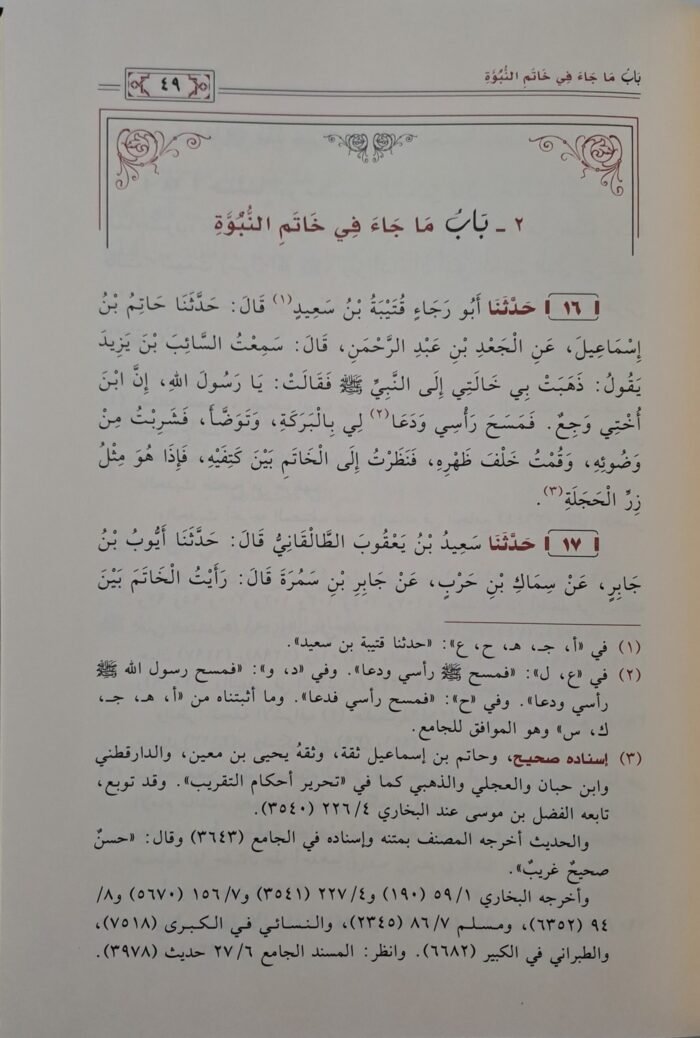 بَابُ مَا جَاءَ فِي خَاتَمِ النُّبُوَّةِ
٤٩
٢ ـ بَابُ مَا جَاءَ فِي خَاتَمِ النُّبُوَّةِ
١٦ حَدَّثَنَا أَبُو رَجَاءٍ قُتَيْبَةُ بْنُ سَعِيدٍ(١) قَالَ: حَدَّثَنَا حَاتِمُ بْنُ
إِسْمَاعِيلَ، عَنِ الْجَعْدِ بْنِ عَبْدِ الرَّحْمَنِ، قَالَ: سَمِعْتُ السَّائِبَ بْنَ يَزِيدَ
يَقُولُ: ذَهَبَتْ بِي خَالَتِي إِلَى النَّبِيِّ ﷺ فَقَالَتْ: يَا رَسُولَ اللهِ، إِنَّ ابْنَ
أُخْتِي وَجِعٌ. فَمَسَحَ رَأْسِي وَدَعَا(٢) لِي بِالْبَرَكَةِ، وَتَوَضَّأَ، فَشَرِبْتُ مِنْ
وَضُوئِهِ، وَقُمْتُ خَلْفَ ظَهْرِهِ، فَنَظَرْتُ إِلَى الْخَاتَمِ بَيْنَ كَتِفَيْهِ، فَإِذَا هُوَ مِثْلُ
زِرِّ الْحَجَلَةِ(٣).
١٧ حَدَّثَنَا سَعِيدُ بْنُ يَعْقُوبَ الطَّالْقَانِيُّ قَالَ: حَدَّثَنَا أَيُّوبُ بْنُ
جَابِرٍ، عَنْ سِمَاكِ بْنِ حَرْبٍ، عَنْ جَابِرِ بْنِ سَمُرَةَ قَالَ: رَأَيْتُ الْخَاتَمَ بَيْنَ
(١) في «أ، جـ، هـ، ح، ع»: «حدثنا قتيبة بن سعيد».
(٢) في «ع، ل»: «فمسح ﷺ رأسي ودعا». وفي «د، و»: «فمسح رسول الله ﷺ
رأسي ودعا». وفي «ح»: «فمسح رأسي فدعا». وما أثبتناه من «أ، هـ، جـ،
ك، س» وهو الموافق للجامع.
(٣) إسناده صحيح، وحاتم بن إسماعيل ثقة، وثقهُ يحيى بن معين، والدارقطني
وابن حبان والعجلي والذهبي كما في «تحرير أحكام التقريب». وقد توبع،
تابعه الفضل بن موسى عند البخاري ٢٢٦/٤ (٣٥٤٠).
والحديث أخرجه المصنف بمتنه وإسناده في الجامع (٣٦٤٣) وقال: «حسنٌ
صحيحٌ غريبٌ».
وأخرجه البخاري ٥٩/١ (١٩٠) و٢٢٧/٤ (٣٥٤١) و١٥٦/٧ (٥٦٧٠) و٨/
٩٤ (٦٣٥٢)، ومسلم ٨٦/٧ (٢٣٤٥)، والنسائي في الكبرى (٧٥١٨)،
والطبراني في الكبير (٦٦٨٢). وانظر: المسند الجامع ٢٧/٦ حديث (٣٩٧٨).